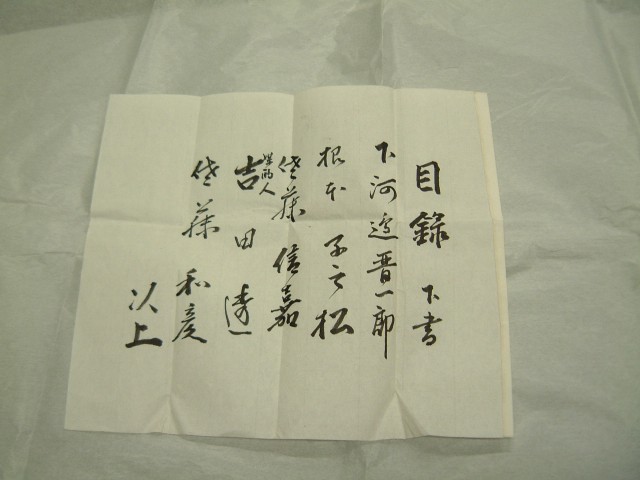 目録 下書
下河邉晋一郎
根本 子之松
佐藤 信嘉
吉田 達一
佐藤 和彦
以上